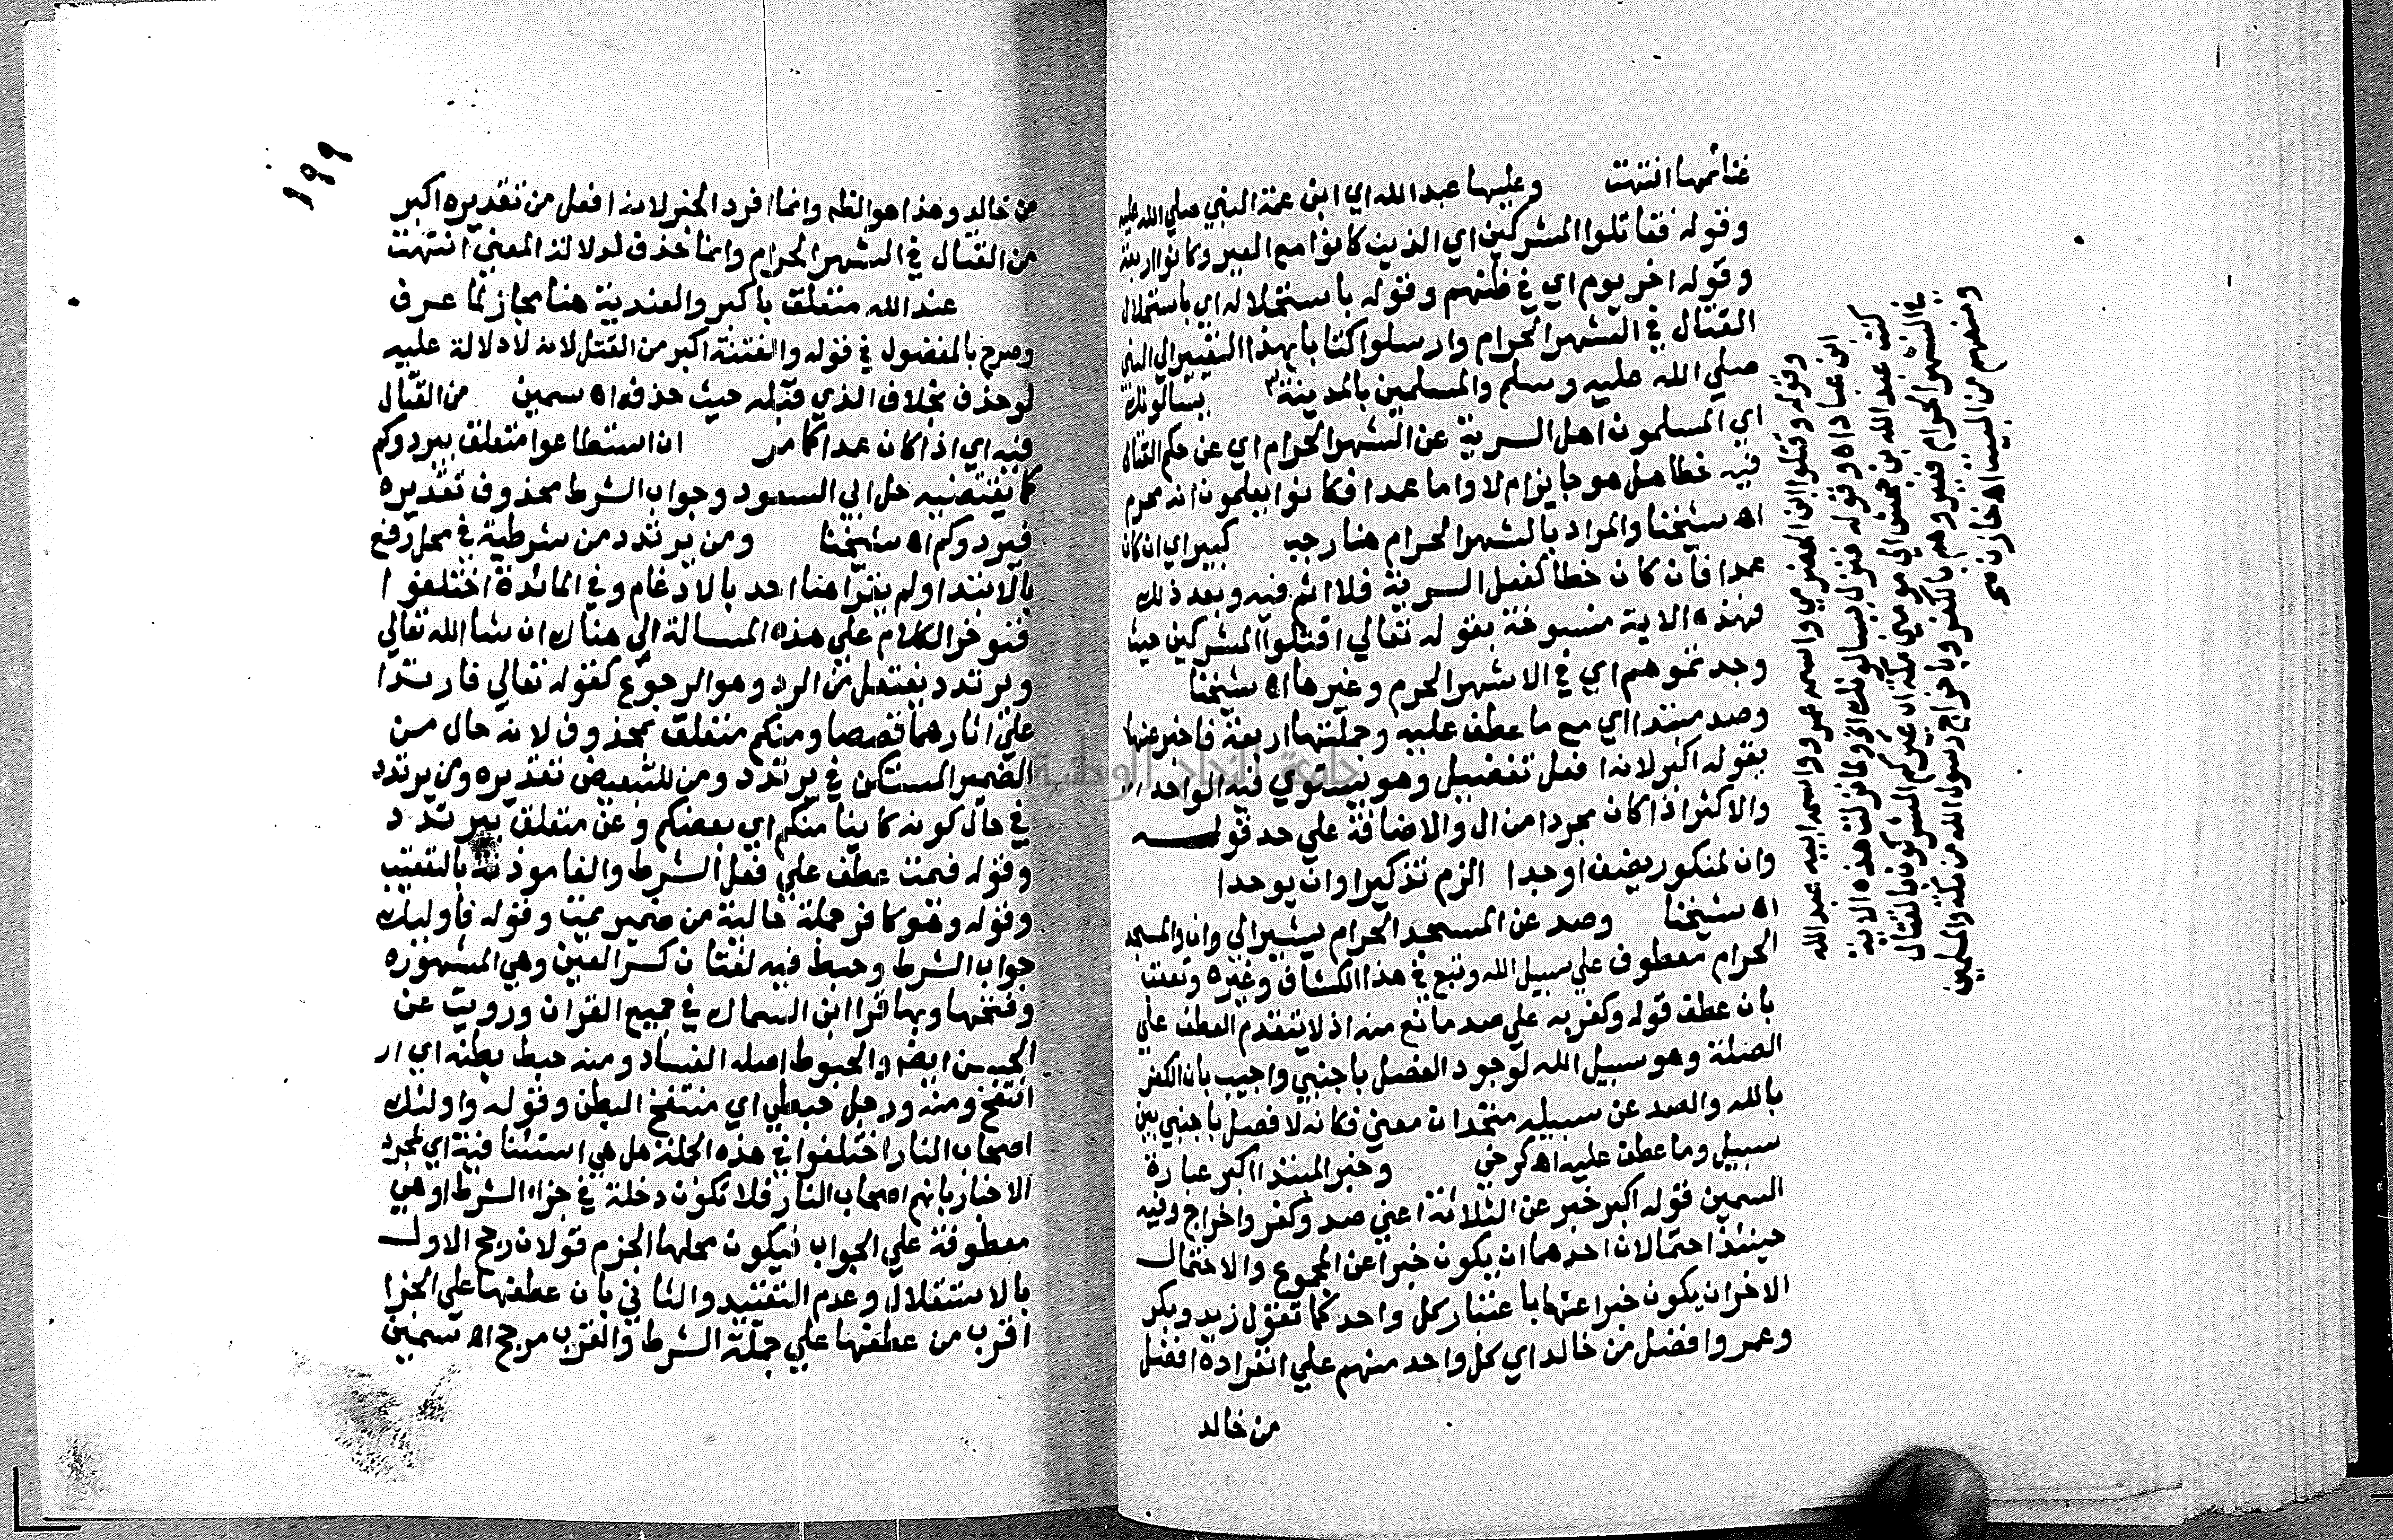 غنائمها انتهت وعليها عبد الله اي ابن عمة النبي صلي الله عليه
وقوله فقاتلوا المشركين اي الذين كانوا مع العير وكانوا اربعة
وقوله اخر يوم اي في ظنهم وقوله باستحلاله اي باستحلال
القتال في الشهر الحرام وارسلوا كتابا بهذا التعيير الي النبي
صلي الله عليه وسلم والمسلمين بالمدينة يسالونك
اي المسلمون اهل السرية عن الشهر الحرام اي عن حكم القتال
فيه خطا هل هو جايز ام لا واما عمدا فكانوا يعلمون انه محرم
اه شيخنا والمراد بالشهر الحرام هنا رجب كبير اي ان كان
عمدا فان كان خطا كفعل السرية فلا اثم فيه وبعد ذلك
فهذه الاية منسوخة بقوله تعالي اقتلوا المشركين حيث
وجدتموهم اي في الاشهر الحرم وغيرها اه شيخنا
وصد مبتدا اي مع ما عطف عليه وجملتها اربعة فاخبر عنها
بقوله اكبر لانه افعل تفضيل وهو يستوي فيه الواحد
والاكثر اذا كان مجردا من ال والاضافة علي حد قوله
وان لمنكور يضف او جردا الزم تذكيرا وان يوحدا
اه شيخنا وصد عن المسجد الحرام يشير الي وان والمسجد
الحرام معطوف علي سبيل الله وتبع في هذا الكشاف وغيره وتعقب
بان عطف قوله وكفر به علي صد مانع منه اذ لا يتقدم العطف علي
الصلة وهو سبيل الله لوجود الفصل باجنبي واجيب بان الكفر
بالله والصد عن سبيله متحدان معني فكانه لا فصل باجنبي بين
سبيل وما عطف عليه اه كرخي وخبر المبتدا اكبر عبارة
السمين قوله اكبر خبر عن الثلاثة اعني صد وكفر واخراج وفيه
حينئذ احتمالان احدهما ان يكون خبرا عن المجموع والاحتمال
الاخر ان يكون خبرا عنها باعتبار كل واحد كما تقول زيد وبكر
وعمر وافضل من خالد اي كل واحد منهم علي انفراده افضل
من خالد
وقوله وقتلوا ابن الحضرمي واسمه عمرو واسم ابيه عبد الله
ابن عباد اه وقوله فنزل يسالونك الخ ولما نزلت هذه الاية
كتب عبد الله بن جحش الي مومني مكة ان عيركم المشركون بالقتال
في الشهر الحرام فعيروهم بالكفر وباخراج رسول الله من مكة والمسلمين
ومنعهم من البيت اه خازن
١٩٩
من خالد وهذا هو الظه وانما افرد الخبر لانه افعل من تقديره اكبر
من القتال في الشهر الحرام وانما حذف لدلالة المعني انتهت
عند الله متعلق باكبر والعندية هنا مجاز لما عرف
وصرح بالمفضول في قوله والفتنة اكبر من القتل لانه لا دلالة عليه
لو حذف بخلاف الذي قبله حيث حذف اه سمين من القتال
فيه اي اذا كان عمدا كما مر ان استطاعوا متعلق بيردوكم
كما يقتضيه حل ابي السعود وجواب الشرط محذوف تقديره
فيردوكم اه شيخنا ومن يرتدد من شرطية في محل رفع
بالابتدا ولم يقرا هنا احد بالادغام وفي المائدة اختلفوا
فنوخر الكلام علي هذه المسالة الي هناك ان شا الله تعالي
ويرتدد يفتعل من الرد وهو الرجوع كقوله تعالي فارتدا
علي اثارهما قصصا ومنكم متعلق بمحذوف لانه حال من
الضمير المستكن في يرتدد ومن للتبعيض تقديره ومن يرتدد
في حال كونه كاينا منكم اي بعضكم وعن متعلق بيرتدد
وقوله فيمت عطف علي فعل الشرط والفا موذنة بالتعقيب
وقوله وهو كافر جملة حالية من ضمير يمت وقوله فاوليك
جواب الشرط وحبط فيه لغتان كسر العين وهي المشهورة
وفتحها وبها قرا ابن السمال في جميع القران ورويت عن
الحسن ايضا والحبوط اصله الفساد ومنه حبط بطنه اي
انتفخ ومنه ورجل حبطي اي منتفخ البطن وقوله واولئك
اصحاب النار اختلفوا في هذه الجملة هل هي استئنافية اي لمجرد
الاخبار بانهم اصحاب النار فلا تكون دخلة في جزا الشرط او هي
معطوفة علي الجواب فيكون محلها الجزم قولان رجح الاول
بالاستقلال وعدم التقييد والثاني بان عطفها علي الجزا
اقرب من عطفها علي جملة الشرط والقرب مرجح اه سمين